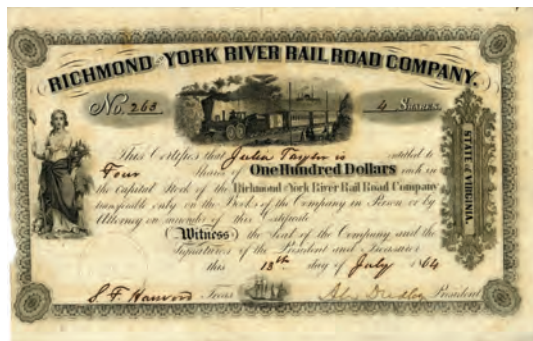 RICHMOND AND YORK RIVER RAIL ROAD COMPANY.
No. 263
4 Shares.
This Certifies that Julia Taylor is entitled to
Four Shares of One Hundred Dollars each in
the Capital Stock of the Richmond & York River Rail Road Company
transferable only on the Books of the Company in Person or by
Attorney on surrender of this Certificate
Witness the Seal of the Company and the
Signatures of the President and Treasurer
this 13th day of July 1864
Treas President
STATE OF VIRGINIA.